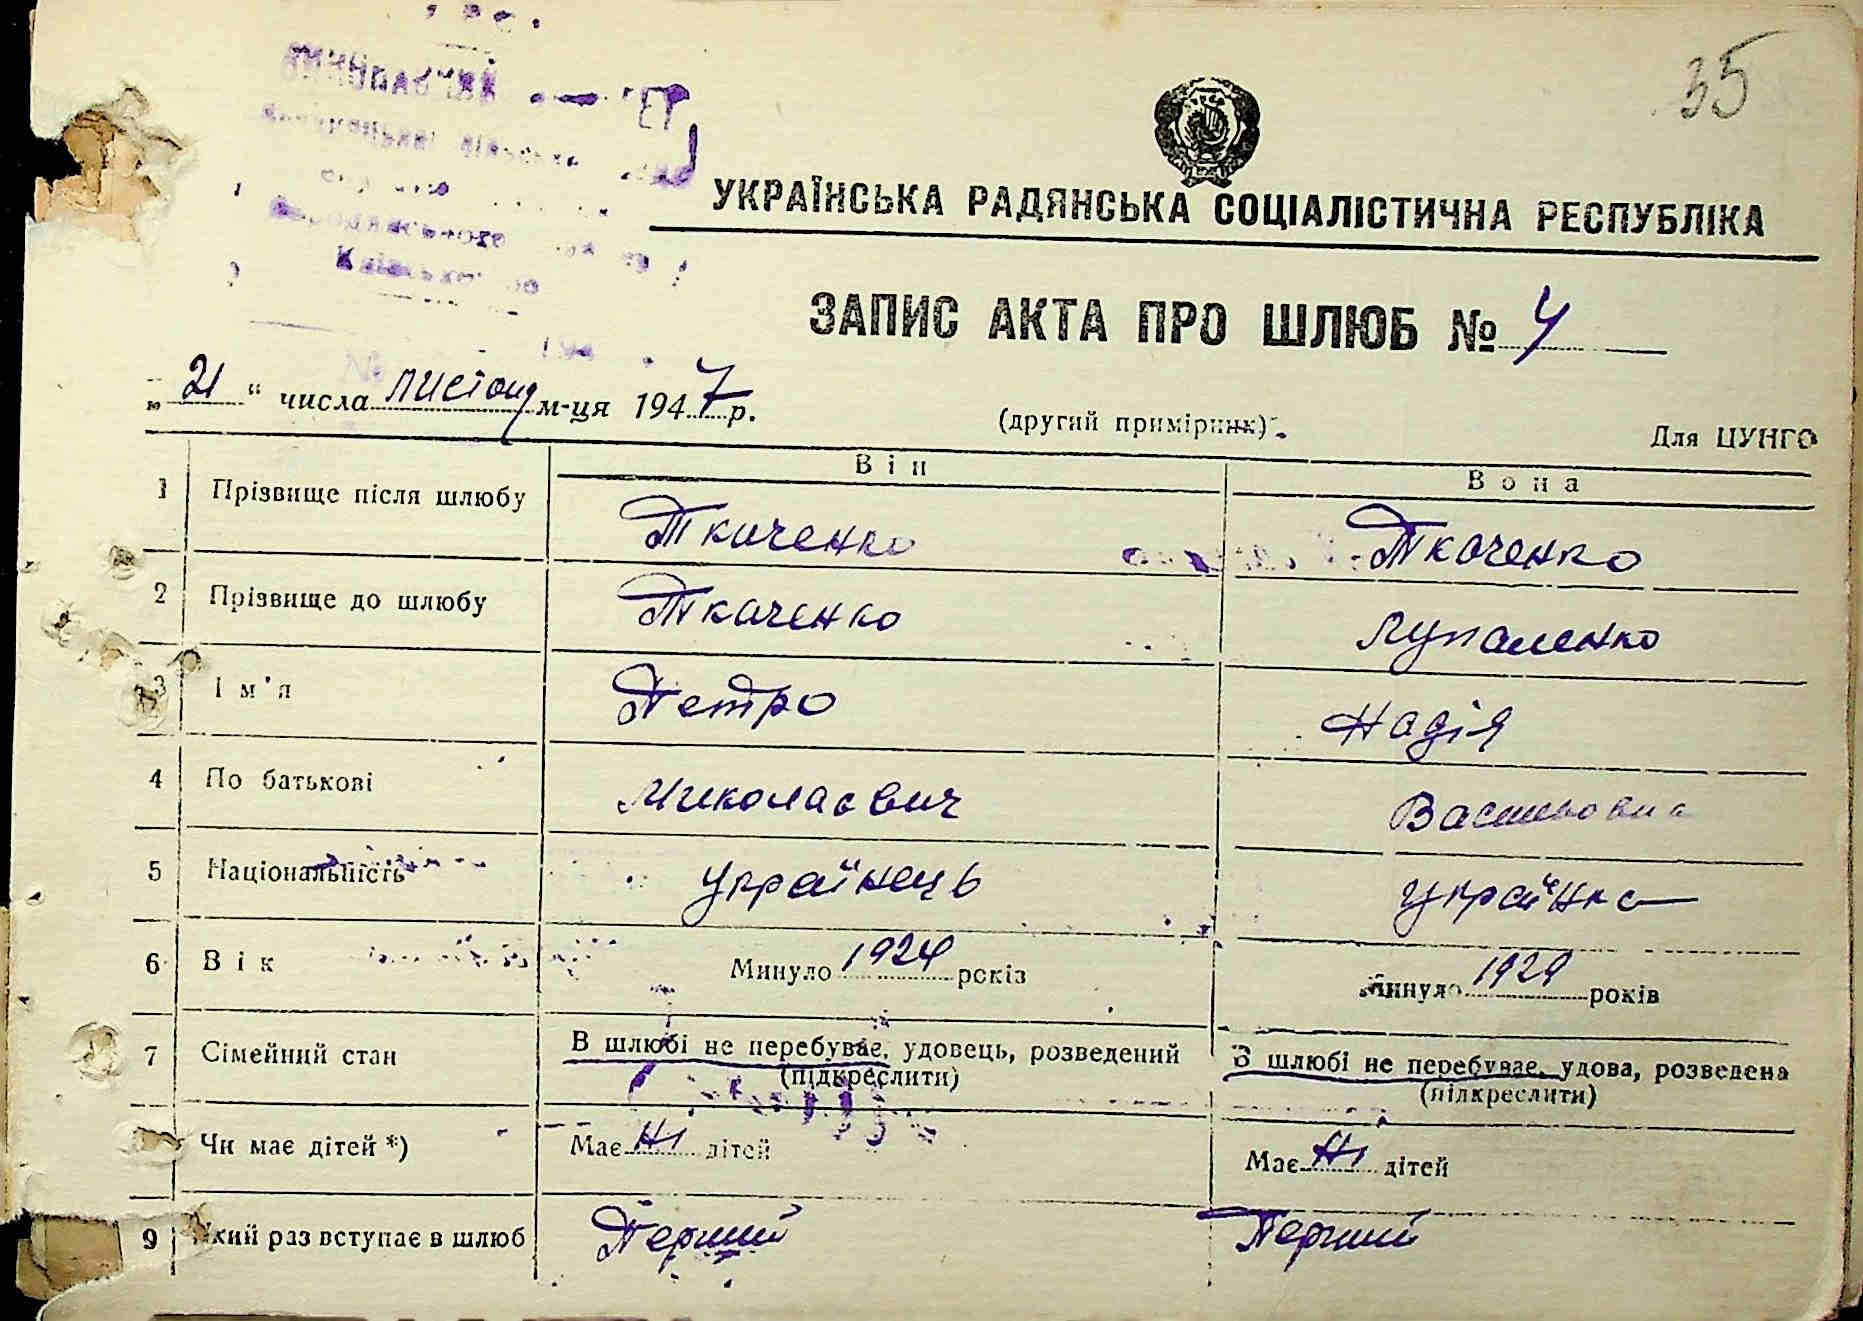 35
УКРАЇНСЬКА РАДЯНСЬКА СОЦІАЛІСТИЧНА РЕСПУБЛІКА
ЗАПИС АКТА ПРО ШЛЮБ № 4
„ 21 “ числа листопад м-ця 1947 р.
(другий примірник)
Для ЦУНГО
Він Вона
1 Прізвище після шлюбу Ткаченко Ткаченко
2 Прізвище до шлюбу Ткаченко Лупаленко
3 Ім'я Петро Надія
4 По батькові Миколаєвич Васильовна
5 Національність українець українка
6 Вік Минуло 1924 років Минуло 1929 років
7 Сімейний стан В шлюбі не перебуває, удовець, розведений В шлюбі не перебуває, удова, розведена
(підкреслити) (підкреслити)
Чи має дітей *) Має ні дітей Має ні дітей
9 Який раз вступає в шлюб Перший Перший